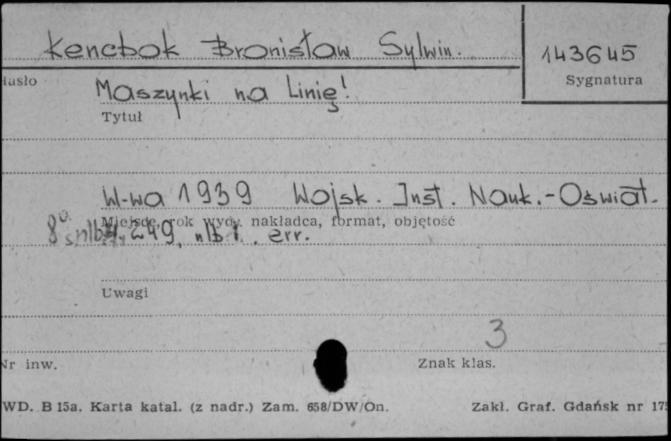 Kencbok Bronisław Sylwin.
143645
Hasło
Sygnatura
Maszynki na Linię!
Tytuł
W-wa 1939 Wojsk. Inst. Nauk.-Oświat.
Miejsce, rok wyd., nakładca, format, objętość
8° s. nlb 249, nlb 1. err.
Uwagi
3
Nr inw.
Znak klas.
WD. B 15a. Karta katal. (z nadr.) Zam. 658/DW/On.
Zakł. Graf. Gdańsk nr